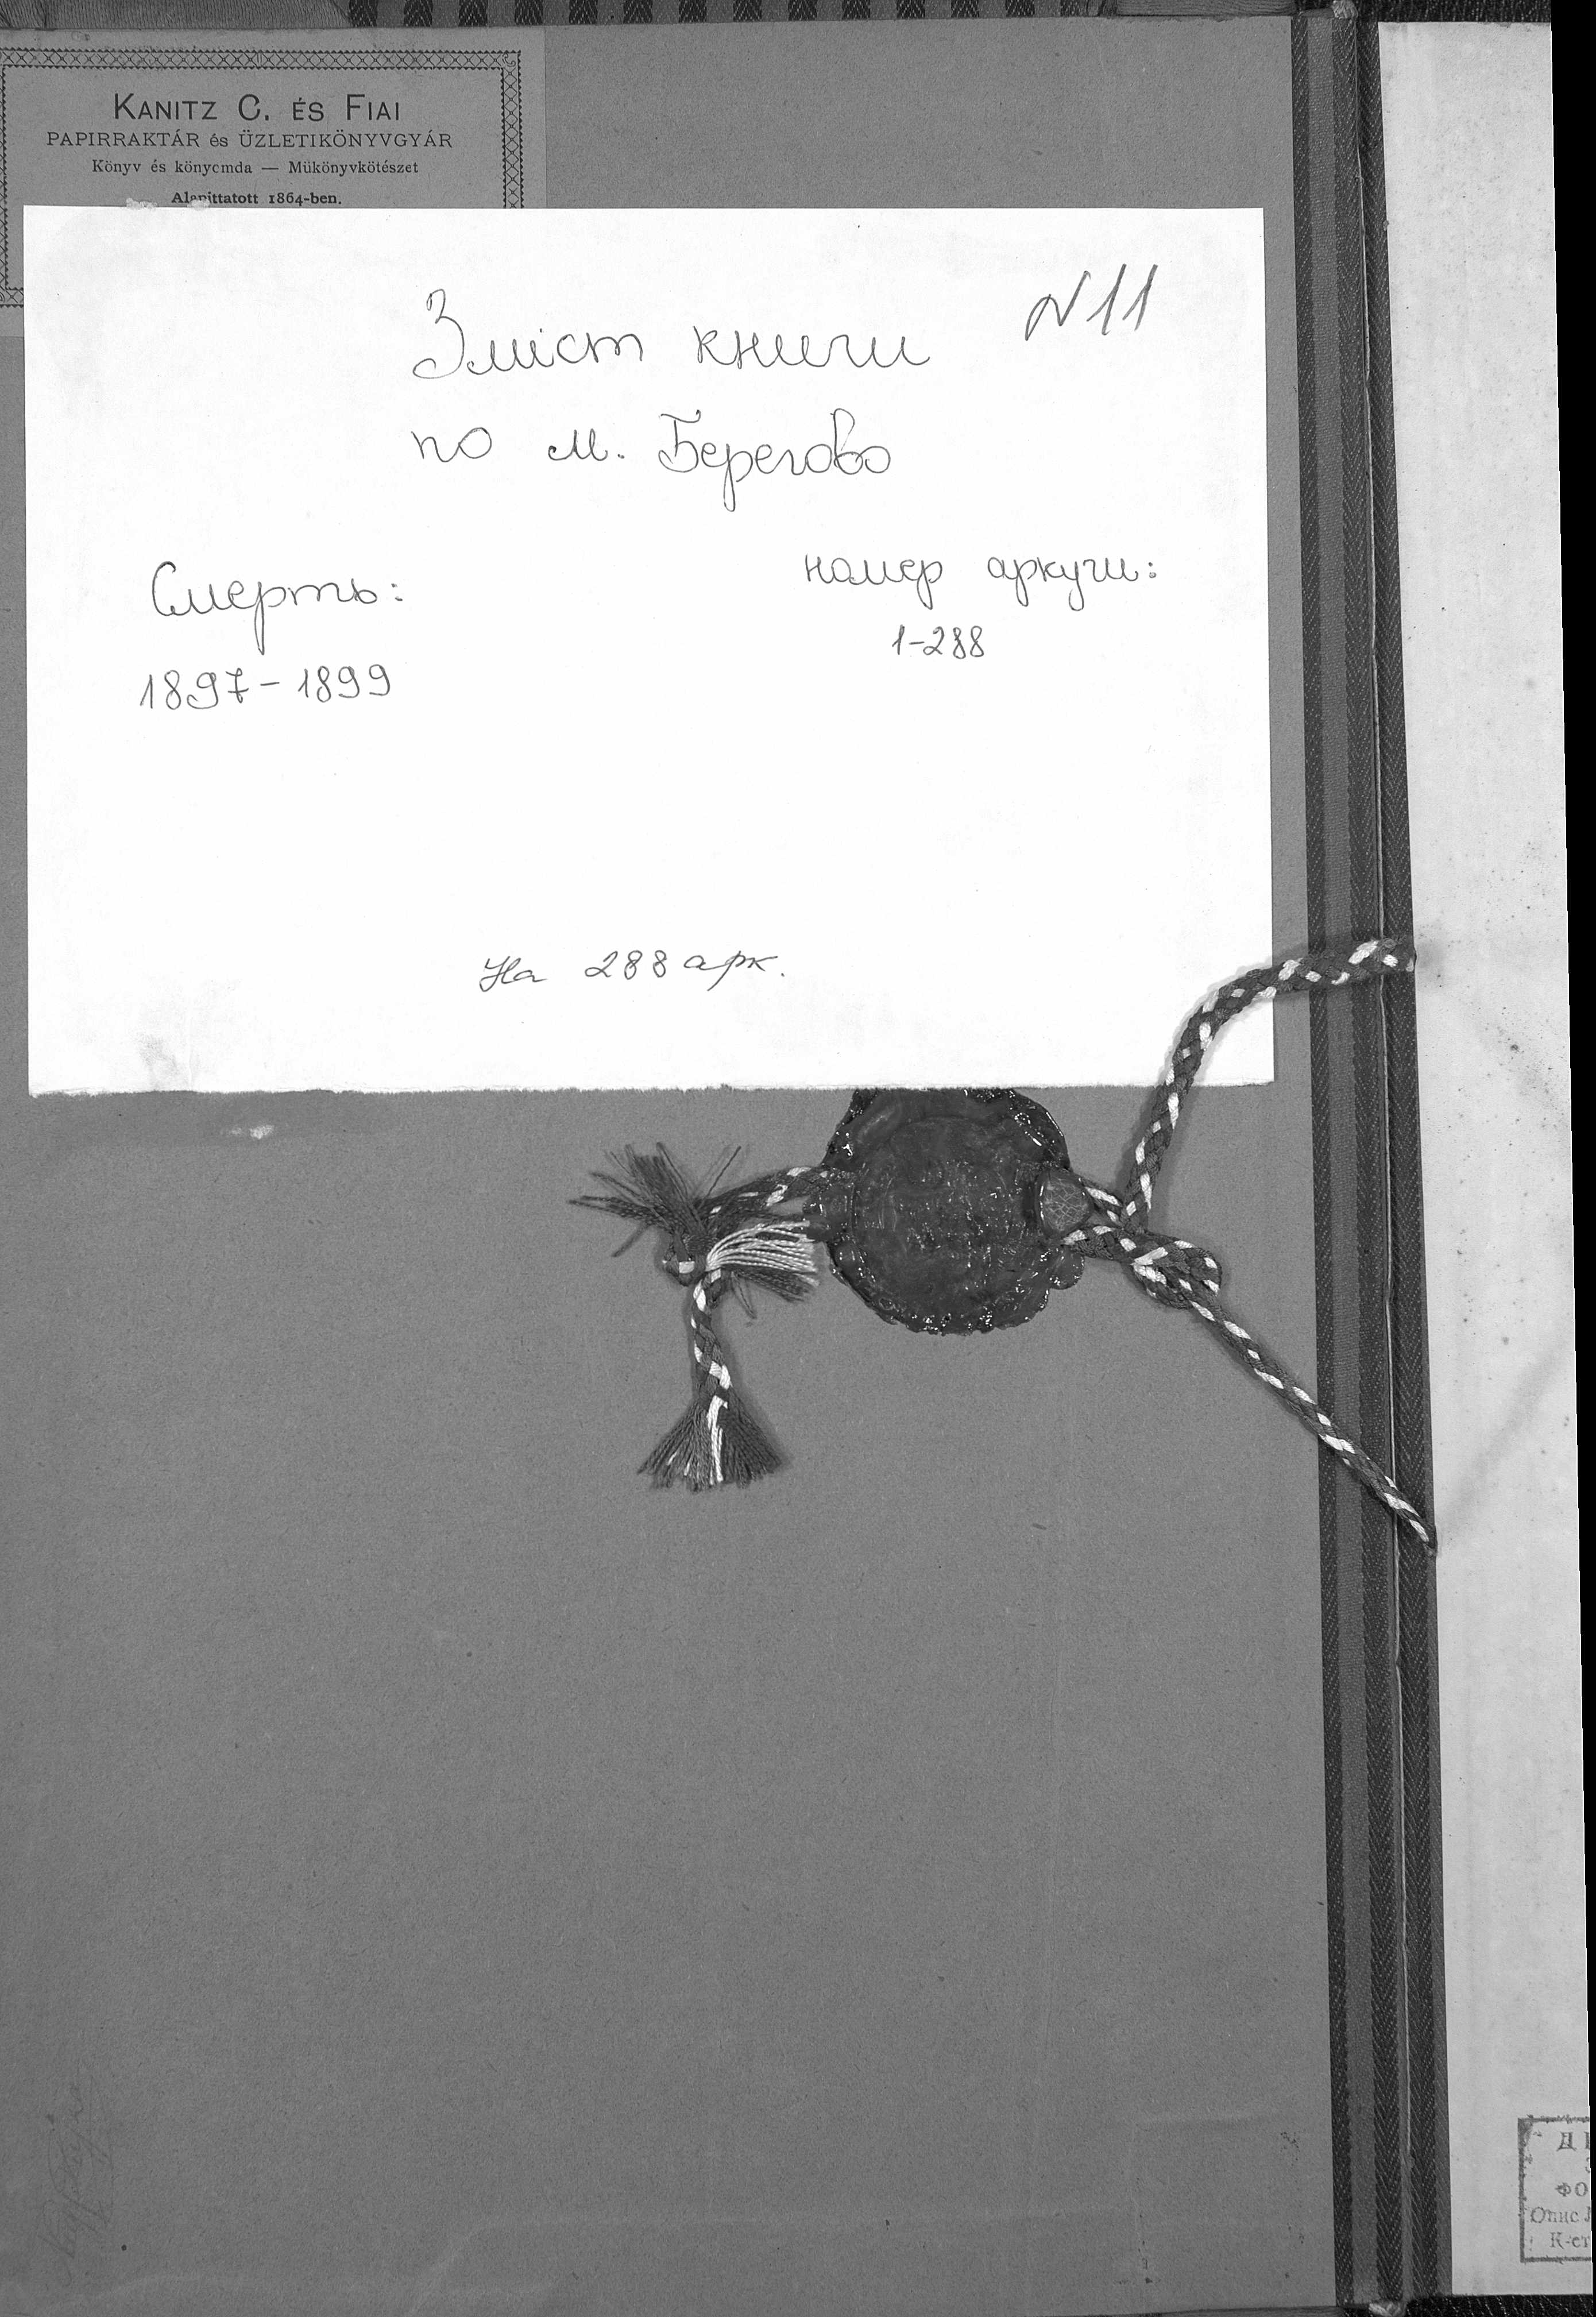 KANITZ C. ÉS FIAI
PAPIRRAKTÁR és ÜZLETIKÖNYVGYÁR
Könyv és könyomda — Mükönyvkötészet
Alapittatott 1864-ben.
N11
Зміст книги
по м. Берегово
Смерть:
номер аркуши:
1-288
1897-1899
На 288 арк.
Опис
К-ст